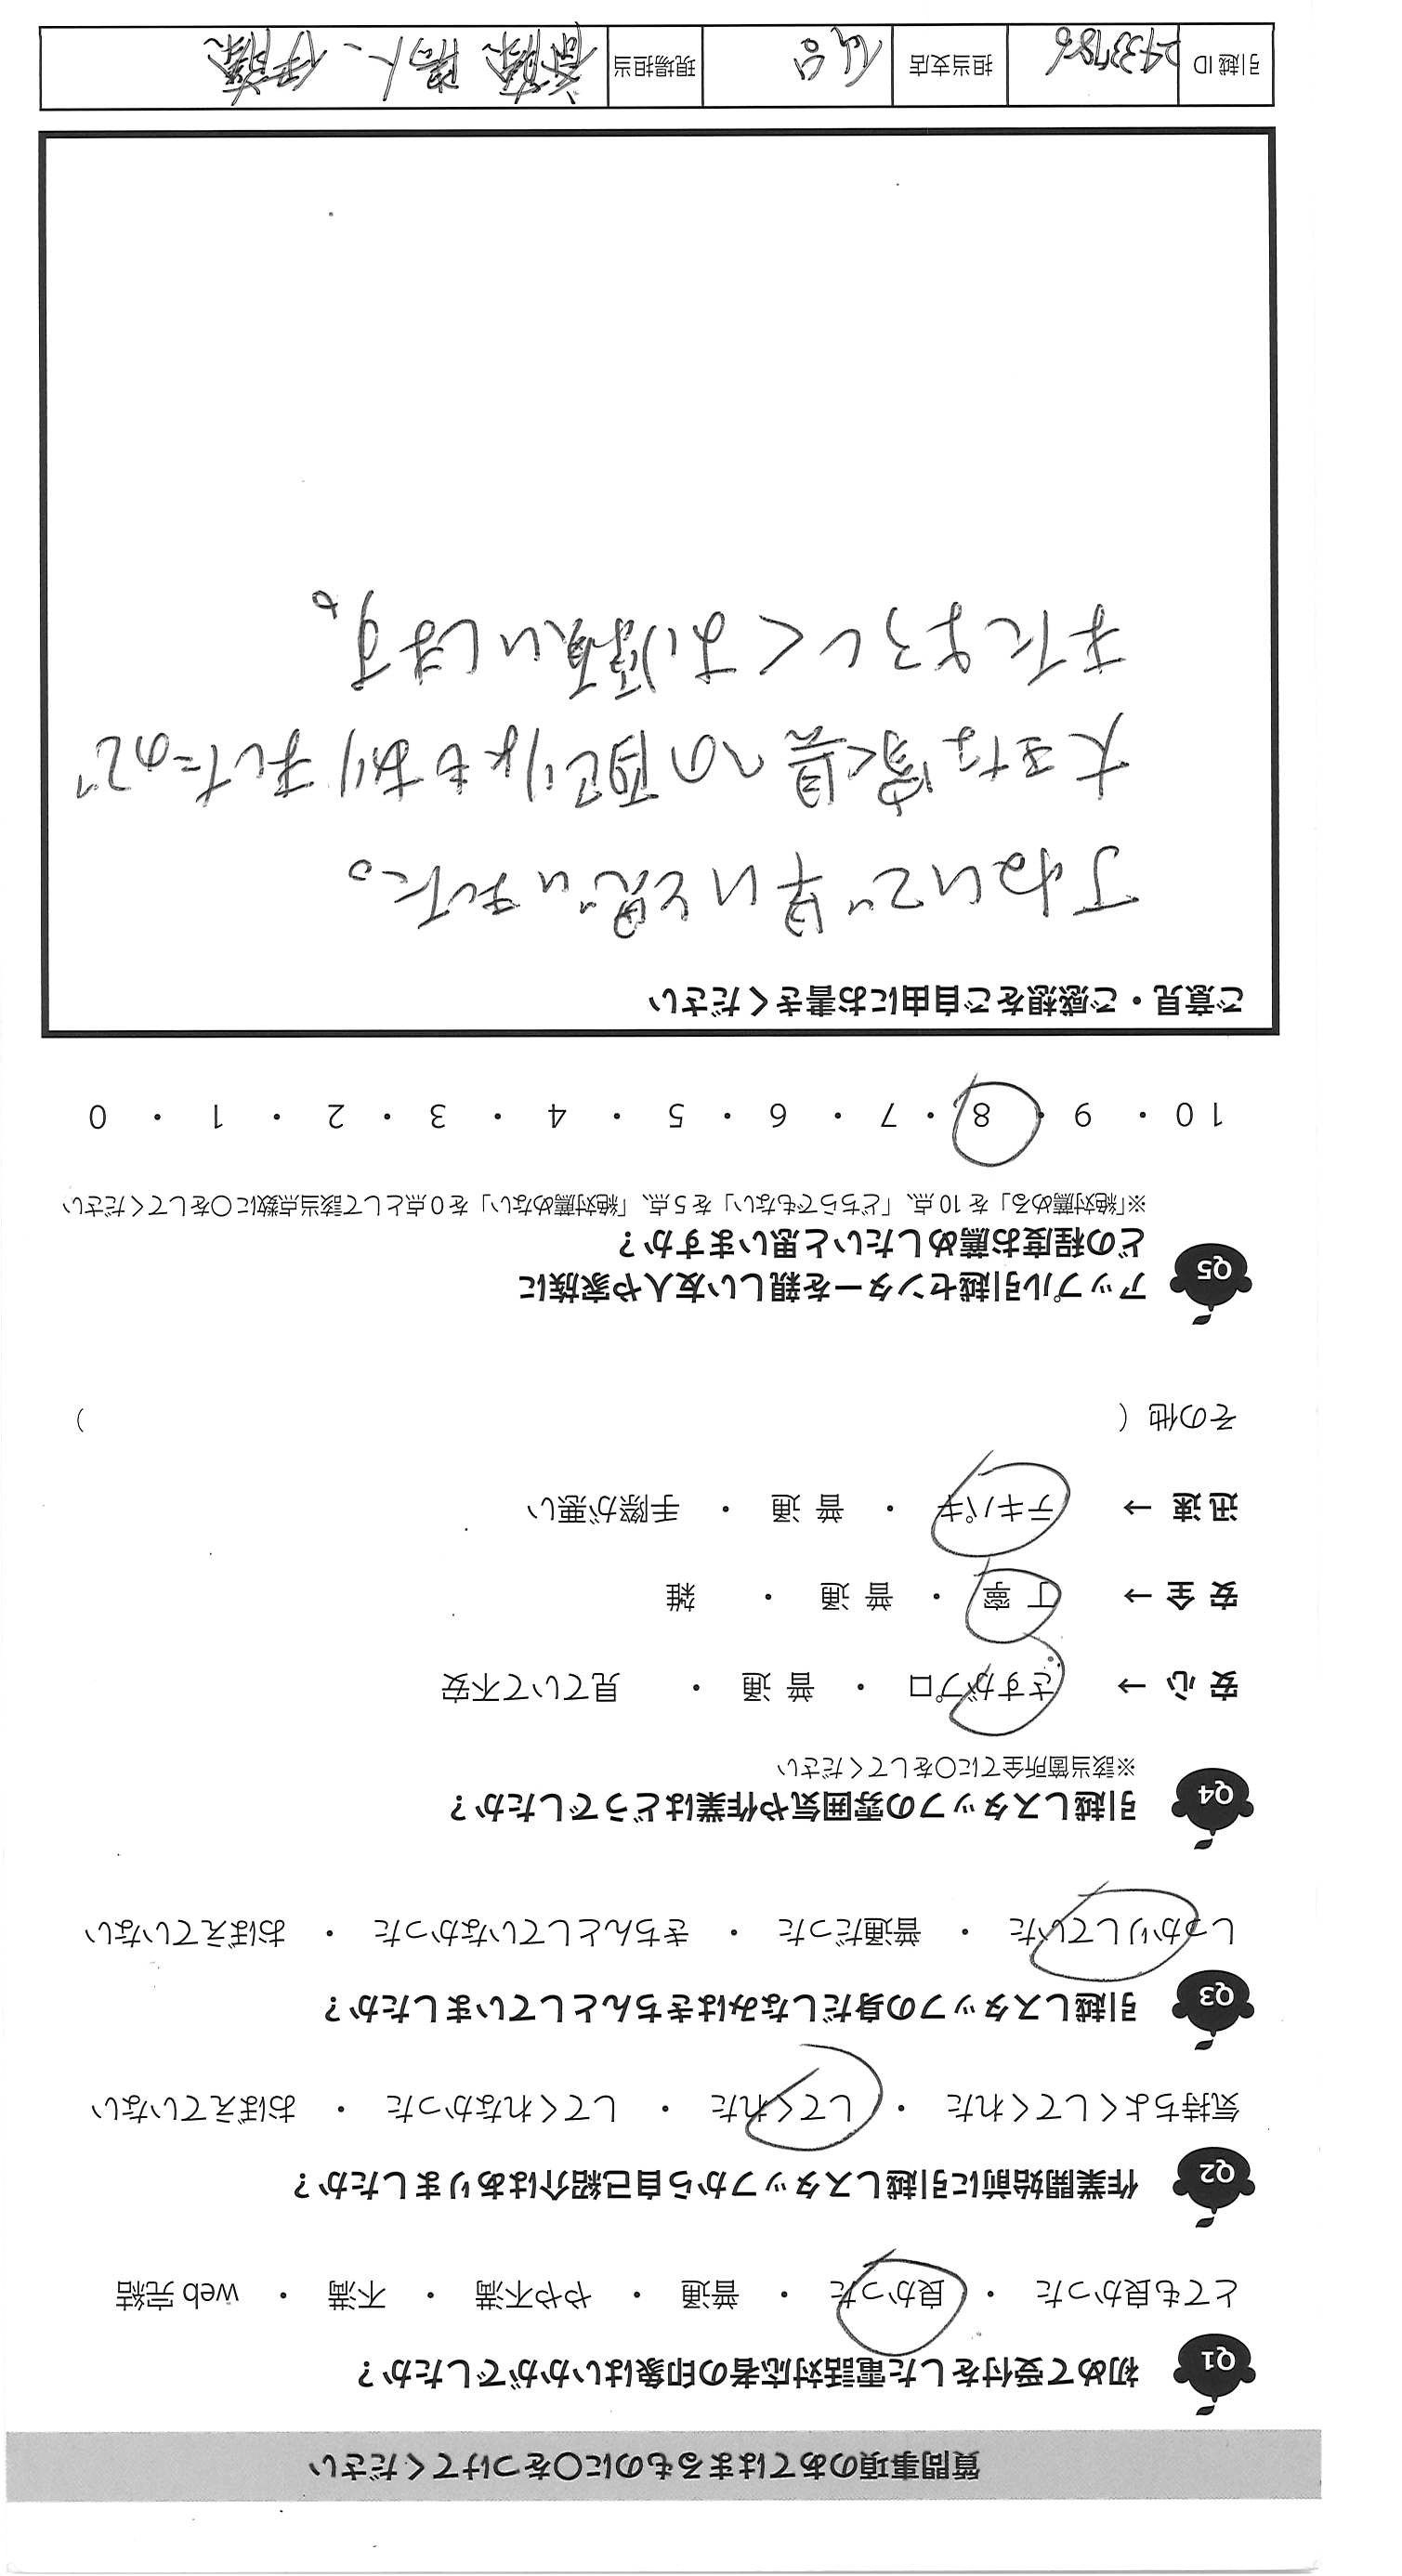 質問事項のあてはまるものに〇をつけてください
Q1 初めて受付をした電話対応者の印象はいかがでしたか？
とても良かった ・ 良かった ・ 普通 ・ やや不満 ・ 不満 ・ web 完結
Q2 作業開始前に引越しスタッフから自己紹介はありましたか？
気持ちよくしてくれた ・ してくれた ・ してくれなかった ・ おぼえていない
Q3 引越しスタッフの身だしなみはきちんとしていましたか？
しっかりしていた ・ 普通だった ・ きちんとしていなかった ・ おぼえていない
Q4 引越しスタッフの雰囲気や作業はどうでしたか？
※該当箇所全てに〇をしてください
安心 → さすがプロ ・ 普通 ・ 見ていて不安
安全 → 丁寧 ・ 普通 ・ 雑
迅速 → テキパキ ・ 普通 ・ 手際が悪い
その他（ ）
Q5 アップル引越センターを親しい友人や家族に
どの程度お薦めしたいと思いますか？
※「絶対薦める」を 10 点、「どちらでもない」を 5 点、「絶対薦めない」を 0 点として該当点数に〇をしてください
10 ・ 9 ・ 8 ・ 7 ・ 6 ・ 5 ・ 4 ・ 3 ・ 2 ・ 1 ・ 0
ご意見・ご感想をご自由にお書きください
丁ねいで早いと思いました。
大きな家具への配りょもありましたので
またよろしくお願いします。
引越 ID 2433786 担当支店 仙台 現場担当 斎藤 陽人、伊藤